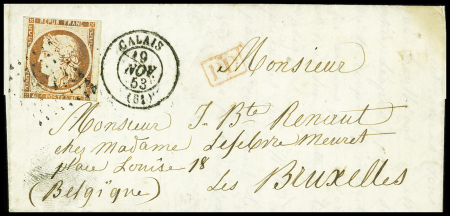 REPUB. FRANC.
CALAIS
19
NOV.
53
(61)
PD
Monsieur
Monsieur J. Bte Renaut
chez Madame Lefebvre Meuret
place Louise 18
(Belgique) les Bruxelles